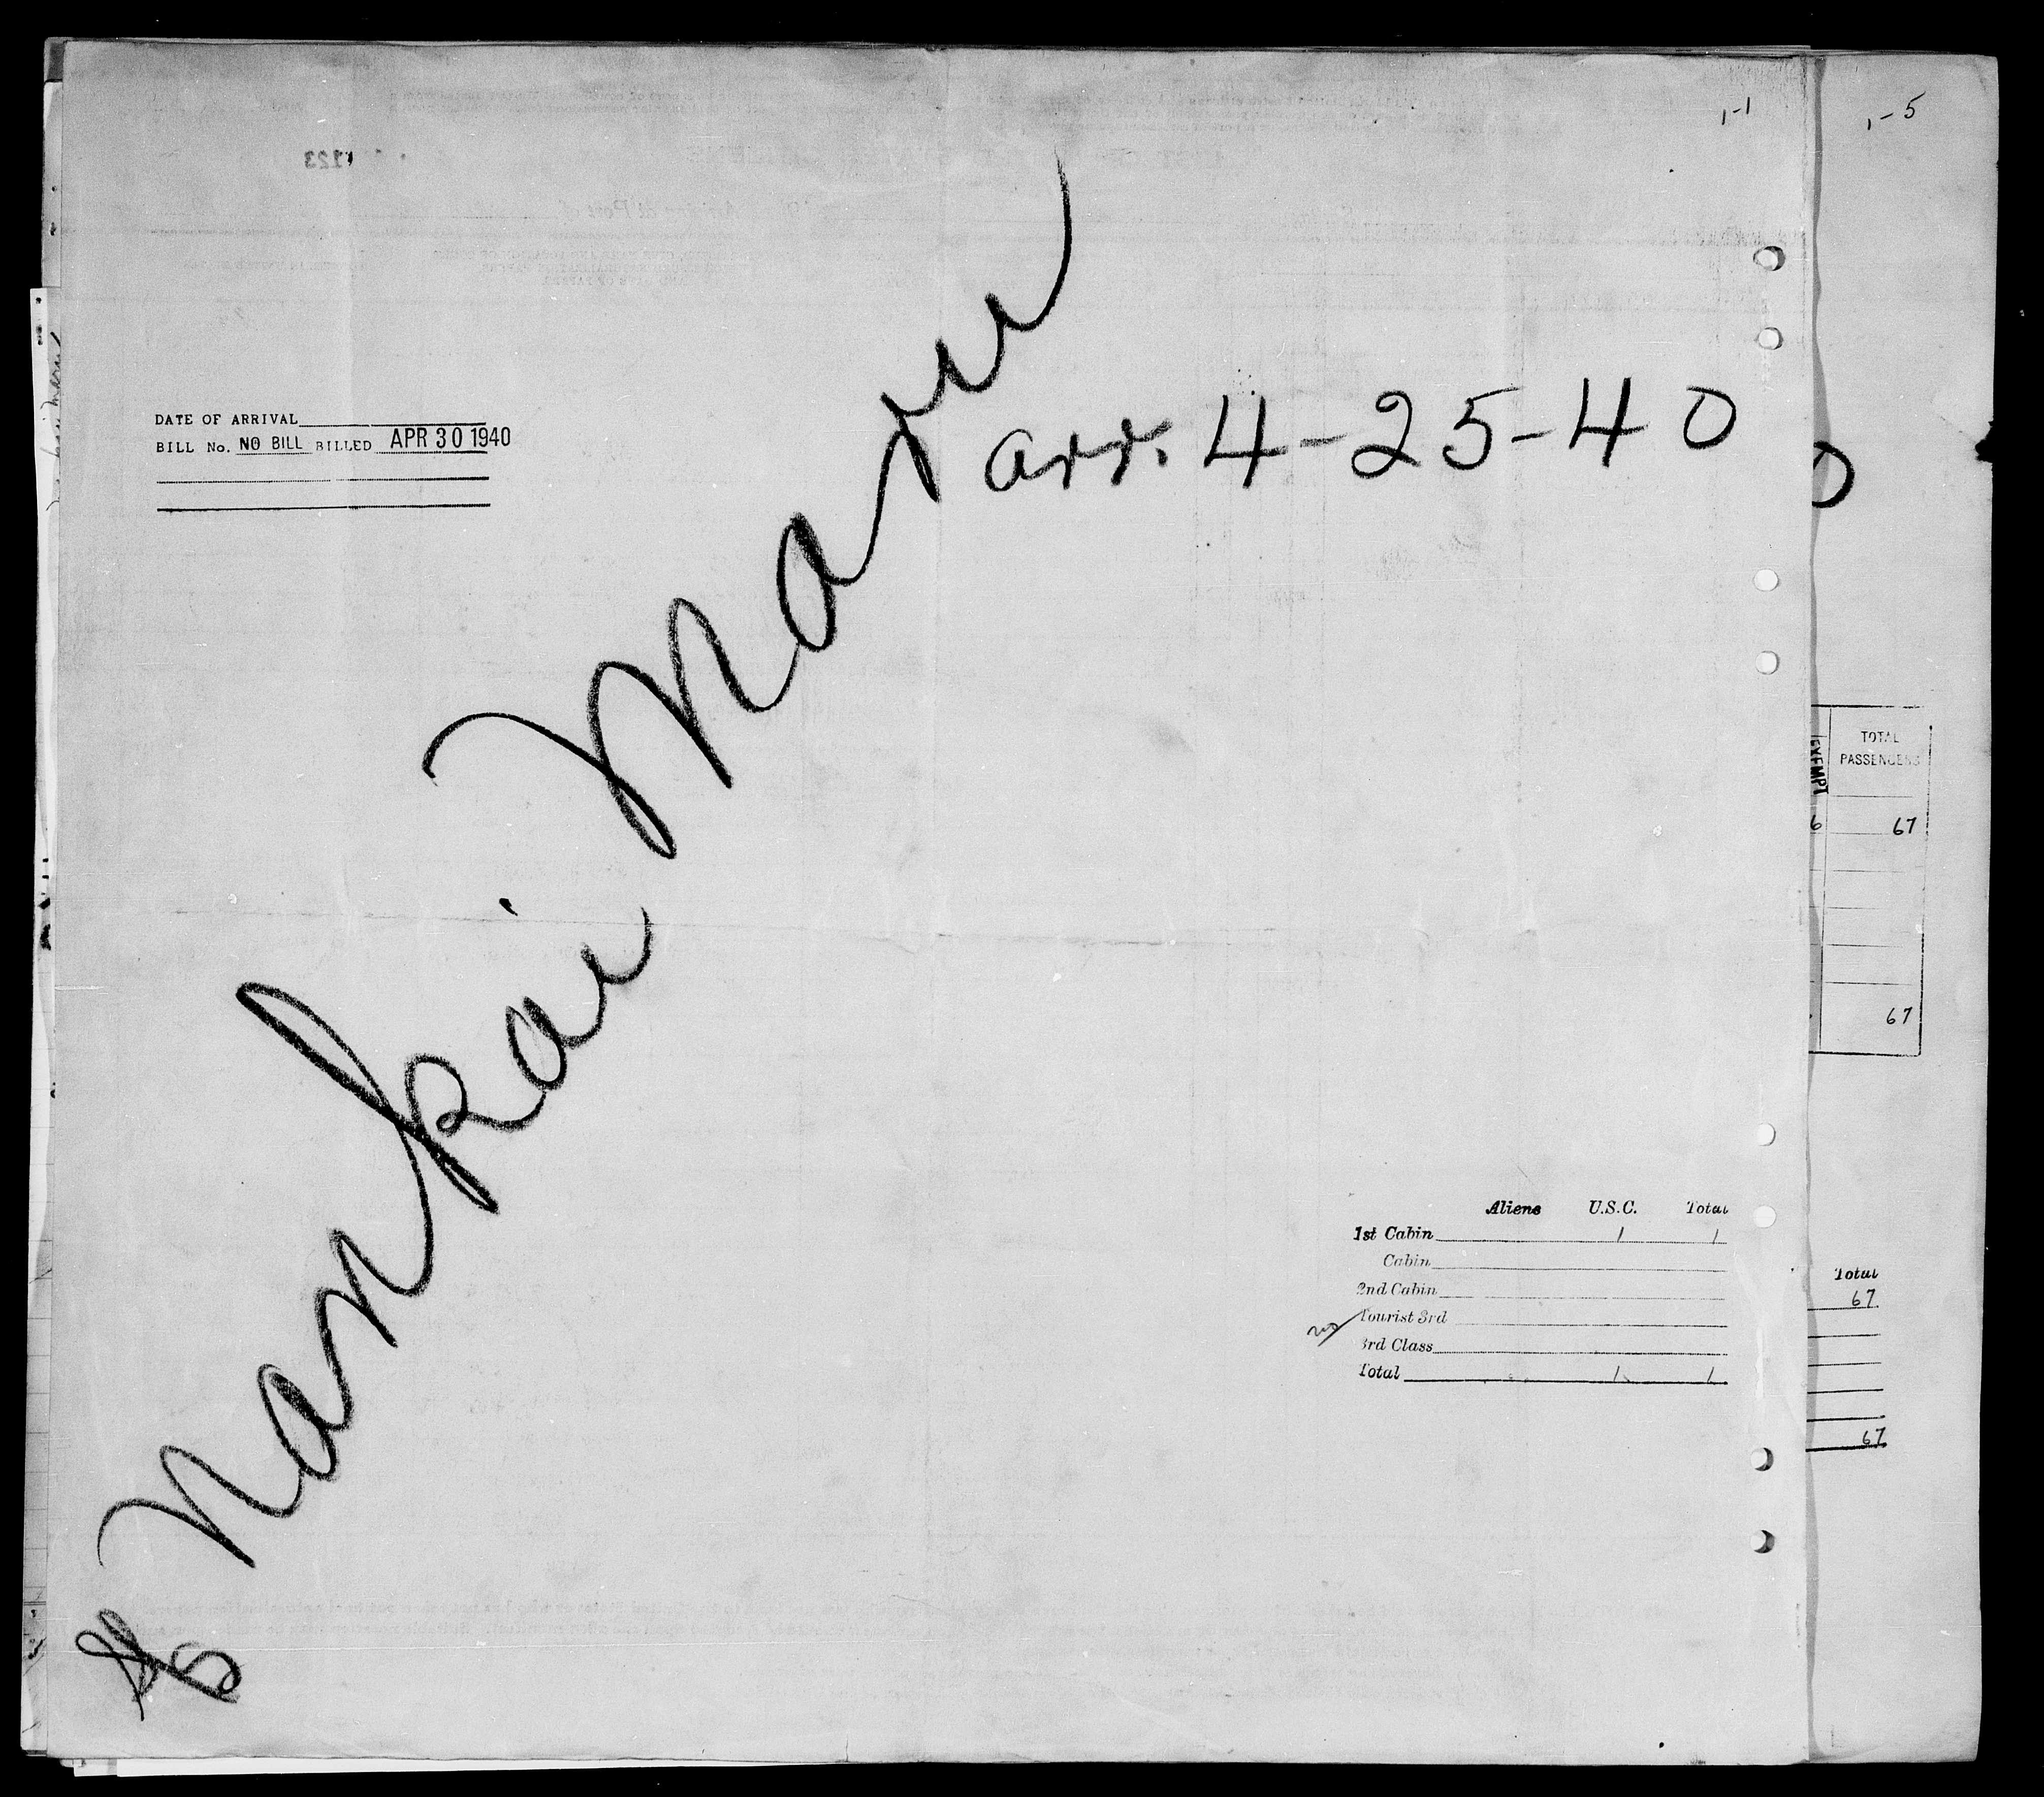 1-1
1-5
DATE OF ARRIVAL
BILL No. NO BILL BILLED APR 30 1940
arr. 4-25-40
SS Nankai Maru
EXEMPT TOTAL PASSENGERS
6 67
67
Aliens U.S.C. Total
1st Cabin 1 1
Cabin
2nd Cabin
Tourist 3rd
3rd Class
Total 1 1
Total
67
67